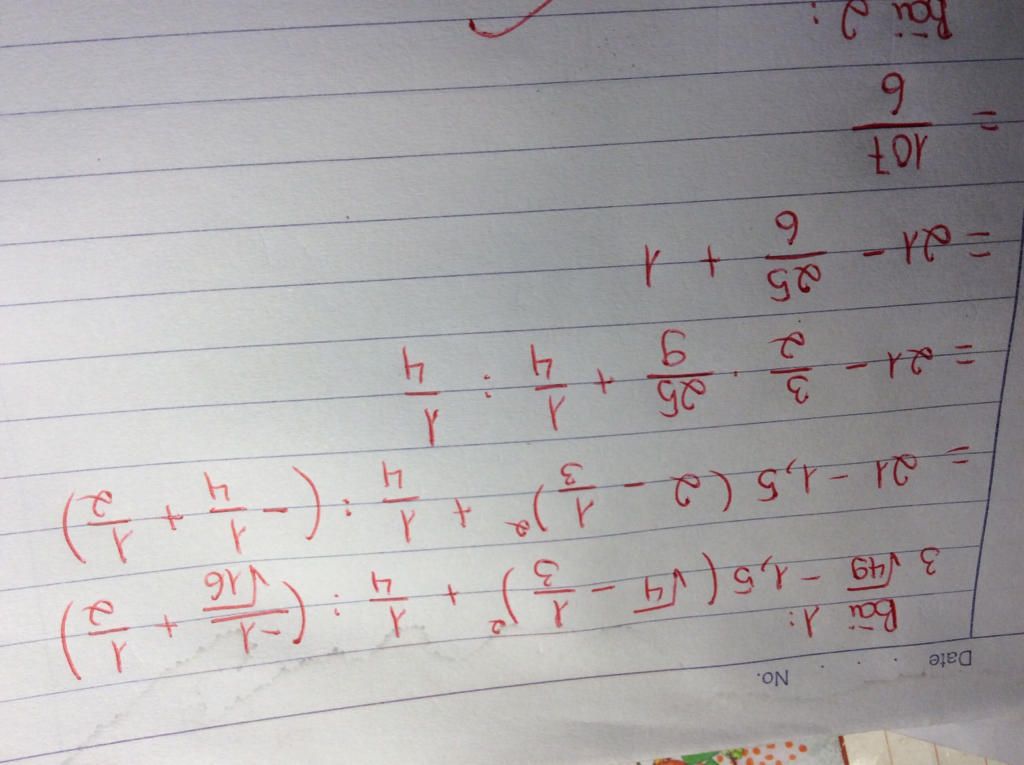 Date No.
Bài 1:
3√49 - 1,5 (√4 - 1/3)² + 1/4 : (-1/√16 + 1/2)
= 21 - 1,5 (2 - 1/3)² + 1/4 : (-1/4 + 1/2)
= 21 - 3/2 . 25/9 + 1/4 : 1/4
= 21 - 25/6 + 1
= 107/6
Bài 2: